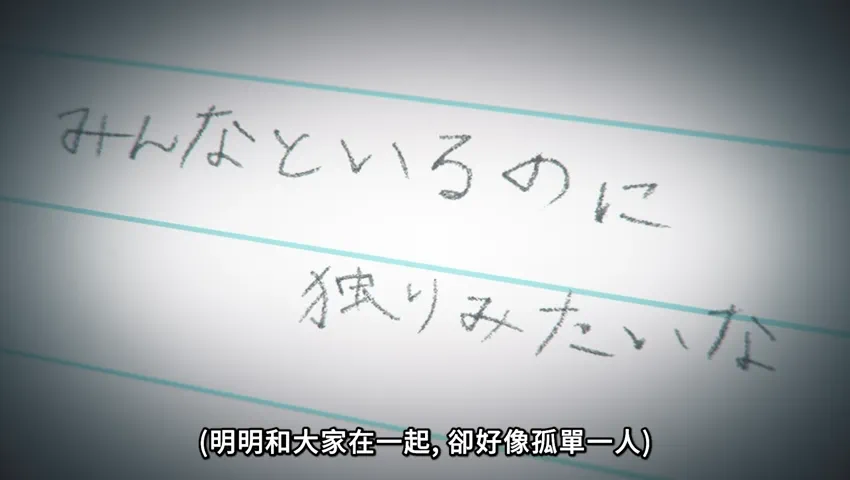 みんなといるのに
独りみたいな
(明明和大家在一起, 卻好像孤單一人)